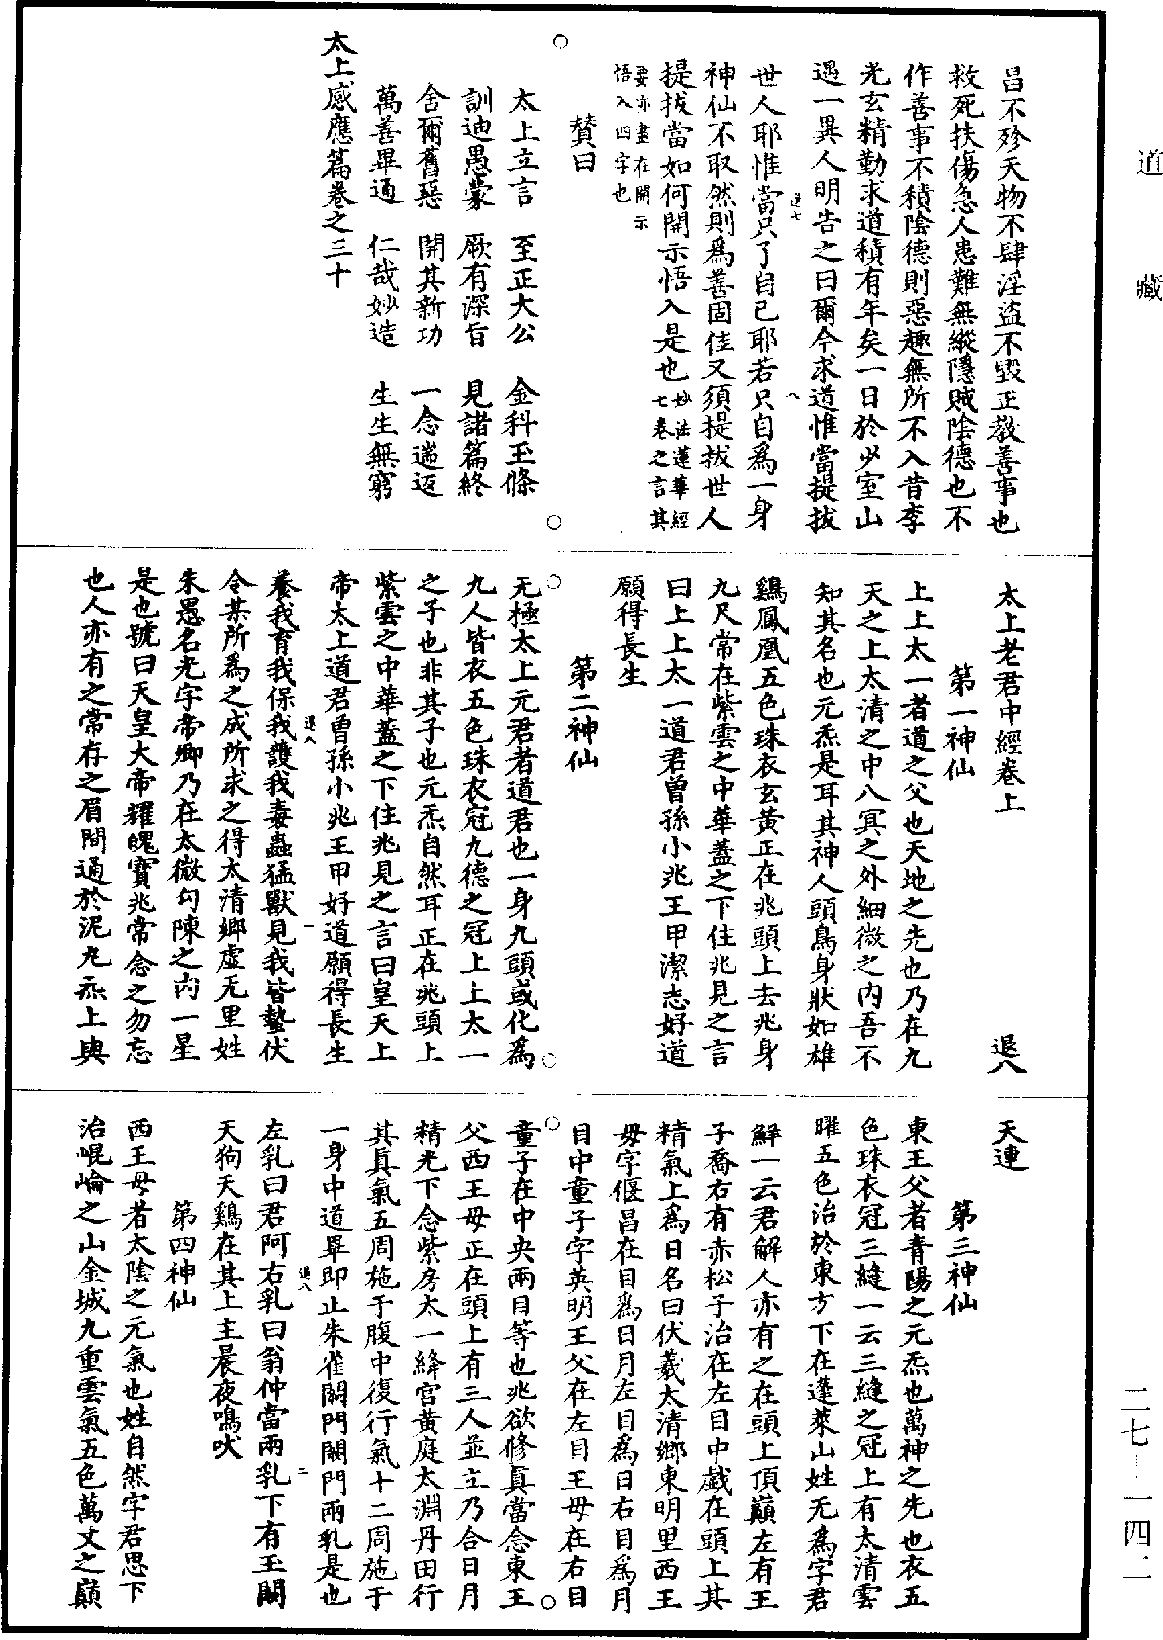 道藏
昌不殄天物不肆淫盜不毀正教善事也
救死扶傷急人患難無縱隱賊陰德也不
作善事不積陰德則惡趣無所不入昔李
光玄精勤求道積有年矣一日於少室山
遇一異人明告之曰爾今求道惟當提拔
退七
八
世人耶惟當只了自己耶若只自為一身
神仙不取然則為善固佳又須提拔世人
提拔當如何開示悟入是也妙法蓮華經
七卷之言其
要亦盡在開示
悟入四字也
贊曰
太上立言 至正大公 金科玉條
訓迪愚蒙 厥有深旨 見諸篇終
舍爾舊惡 開其新功 一念遄返
萬善畢通 仁哉妙造 生生無窮
太上感應篇卷之三十
太上老君中經卷上 退八
第一神仙
上上太一者道之父也天地之先也乃在九
天之上太清之中八冥之外細微之內吾不
知其名也元炁是耳其神人頭鳥身狀如雄
雞鳳凰五色珠衣玄黃正在兆頭上去兆身
九尺常在紫雲之中華蓋之下住兆見之言
曰上上太一道君曾孫小兆王甲潔志好道
願得長生
第二神仙
无極太上元君者道君也一身九頭或化為
九人皆衣五色珠衣冠九德之冠上上太一
之子也非其子也元炁自然耳正在兆頭上
紫雲之中華蓋之下住兆見之言曰皇天上
帝太上道君曾孫小兆王甲好道願得長生
退八
一
養我育我保我護我毒蟲猛獸見我皆蟄伏
令某所為之成所求之得太清鄉虛无里姓
朱愚名光字帝卿乃在太微勾陳之內一星
是也號曰天皇大帝耀魄寶兆常念之勿忘
也人亦有之常存之眉間通於泥丸炁上與
天連
第三神仙
東王父者青陽之元炁也萬神之先也衣五
色珠衣冠三縫一云三縫之冠上有太清雲
曜五色治於東方下在蓬萊山姓无為字君
解一云君解人亦有之在頭上頂巔左有王
子喬右有赤松子治在左目中戲在頭上其
精氣上為日名曰伏羲太清鄉東明里西王
母字偃昌在目為日月左目為日右目為月
目中童子字英明王父在左目王母在右目
童子在中央兩目等也兆欲修真當念東王
父西王母正在頭上有三人並立乃合日月
精光下念紫房太一絳宮黃庭太淵丹田行
其真氣五周施于腹中復行氣十二周施于
一身中道畢即止朱雀闕門闕門兩乳是也
退八
二
左乳曰君阿右乳曰翁仲當兩乳下有玉闕
天狗天雞在其上主晨夜鳴吠
第四神仙
西王母者太陰之元氣也姓自然字君思下
治崐崘之山金城九重雲氣五色萬丈之巔
二七—一四二